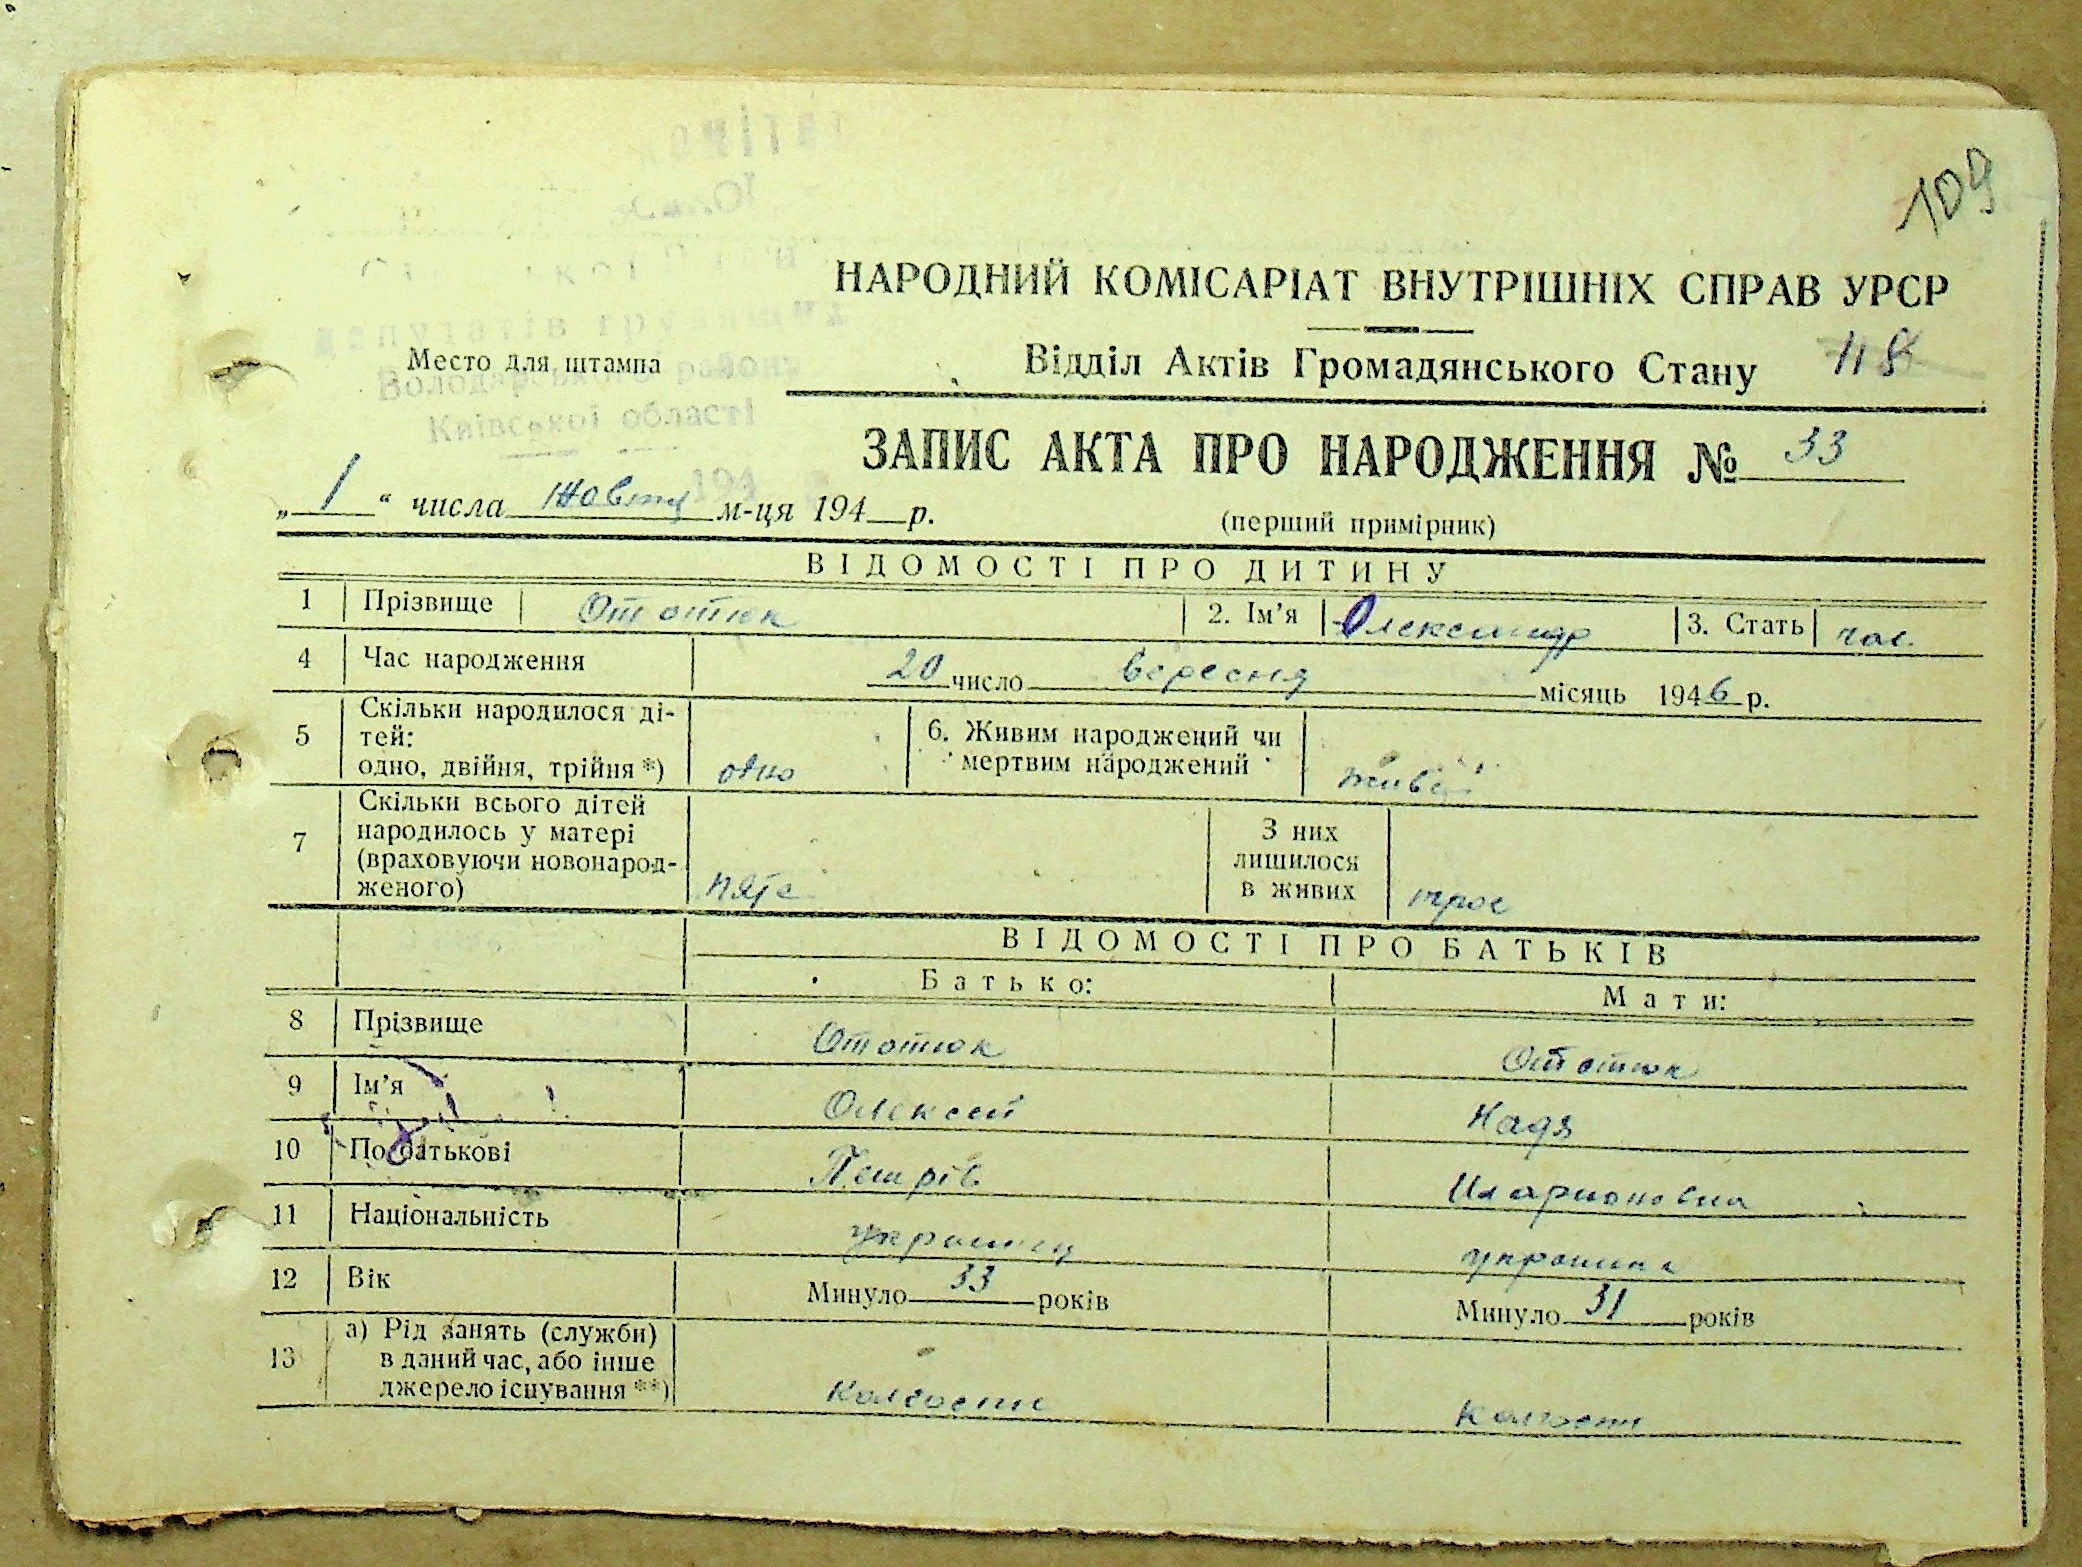 109
НАРОДНИЙ КОМІСАРІАТ ВНУТРІШНІХ СПРАВ УРСР
депутатів трудящих
Место для штампа
Володарського району
Відділ Актів Громадянського Стану 118
Київської області
ЗАПИС АКТА ПРО НАРОДЖЕННЯ № 33
„ 1 “ числа Жовтц м-ця 194 р.
(перший примірник)
ВІДОМОСТІ ПРО ДИТИНУ
1 Прізвище Ототюк 2. Ім’я Олександр 3. Стать чол.
4 Час народження 20 число вересня місяць 1946 р.
5 Скільки народилося ді-
тей:
одно, двійня, трійня *) одно
6. Живим народжений чи
мертвим народжений живий
7 Скільки всього дітей
народилось у матері
(враховуючи новонарод-
женого) пяте
З них
лишилося
в живих трое
ВІДОМОСТІ ПРО БАТЬКІВ
Батько: Мати:
8 Прізвище Ототюк Ототюк
9 Ім’я Олексій Надя
10 По батькові Петрів Иларионовна
11 Національність українец українка
12 Вік Минуло 33 років Минуло 31 років
13 а) Рід занять (служби)
в даний час, або інше
джерело існування **) колгоспн колгоспн